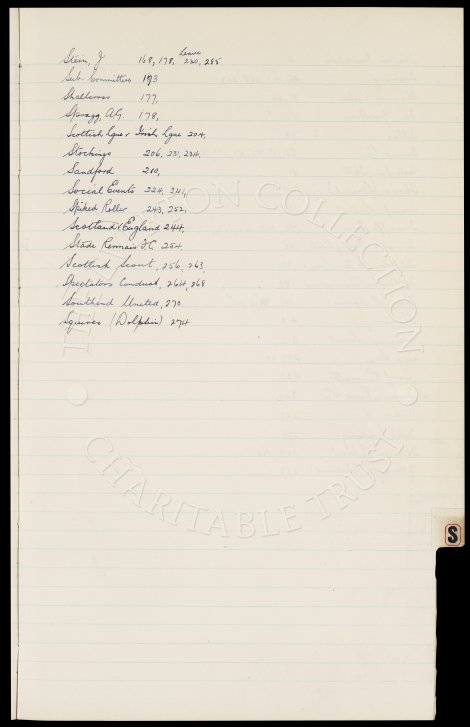 Leave
Stein, J 168, 178, 280, 288
Sub Committees 173
Shallcross 177,
Spragg, A.G. 178,
Scottish Lgue v Irish Lgue 204,
Stockings 206, 231, 234,
Sandford 210,
Social Events 224, 241,
Spiked Roller 243, 252,
Scotland v England 244,
Stade Rennais F.C. 254,
Scottish Scout, 256, 263,
Spectators Conduct, 264, 268
Southend United, 270.
Squires (Dolphin) 274
S
COLLECTION
CHARITABLE TRUST